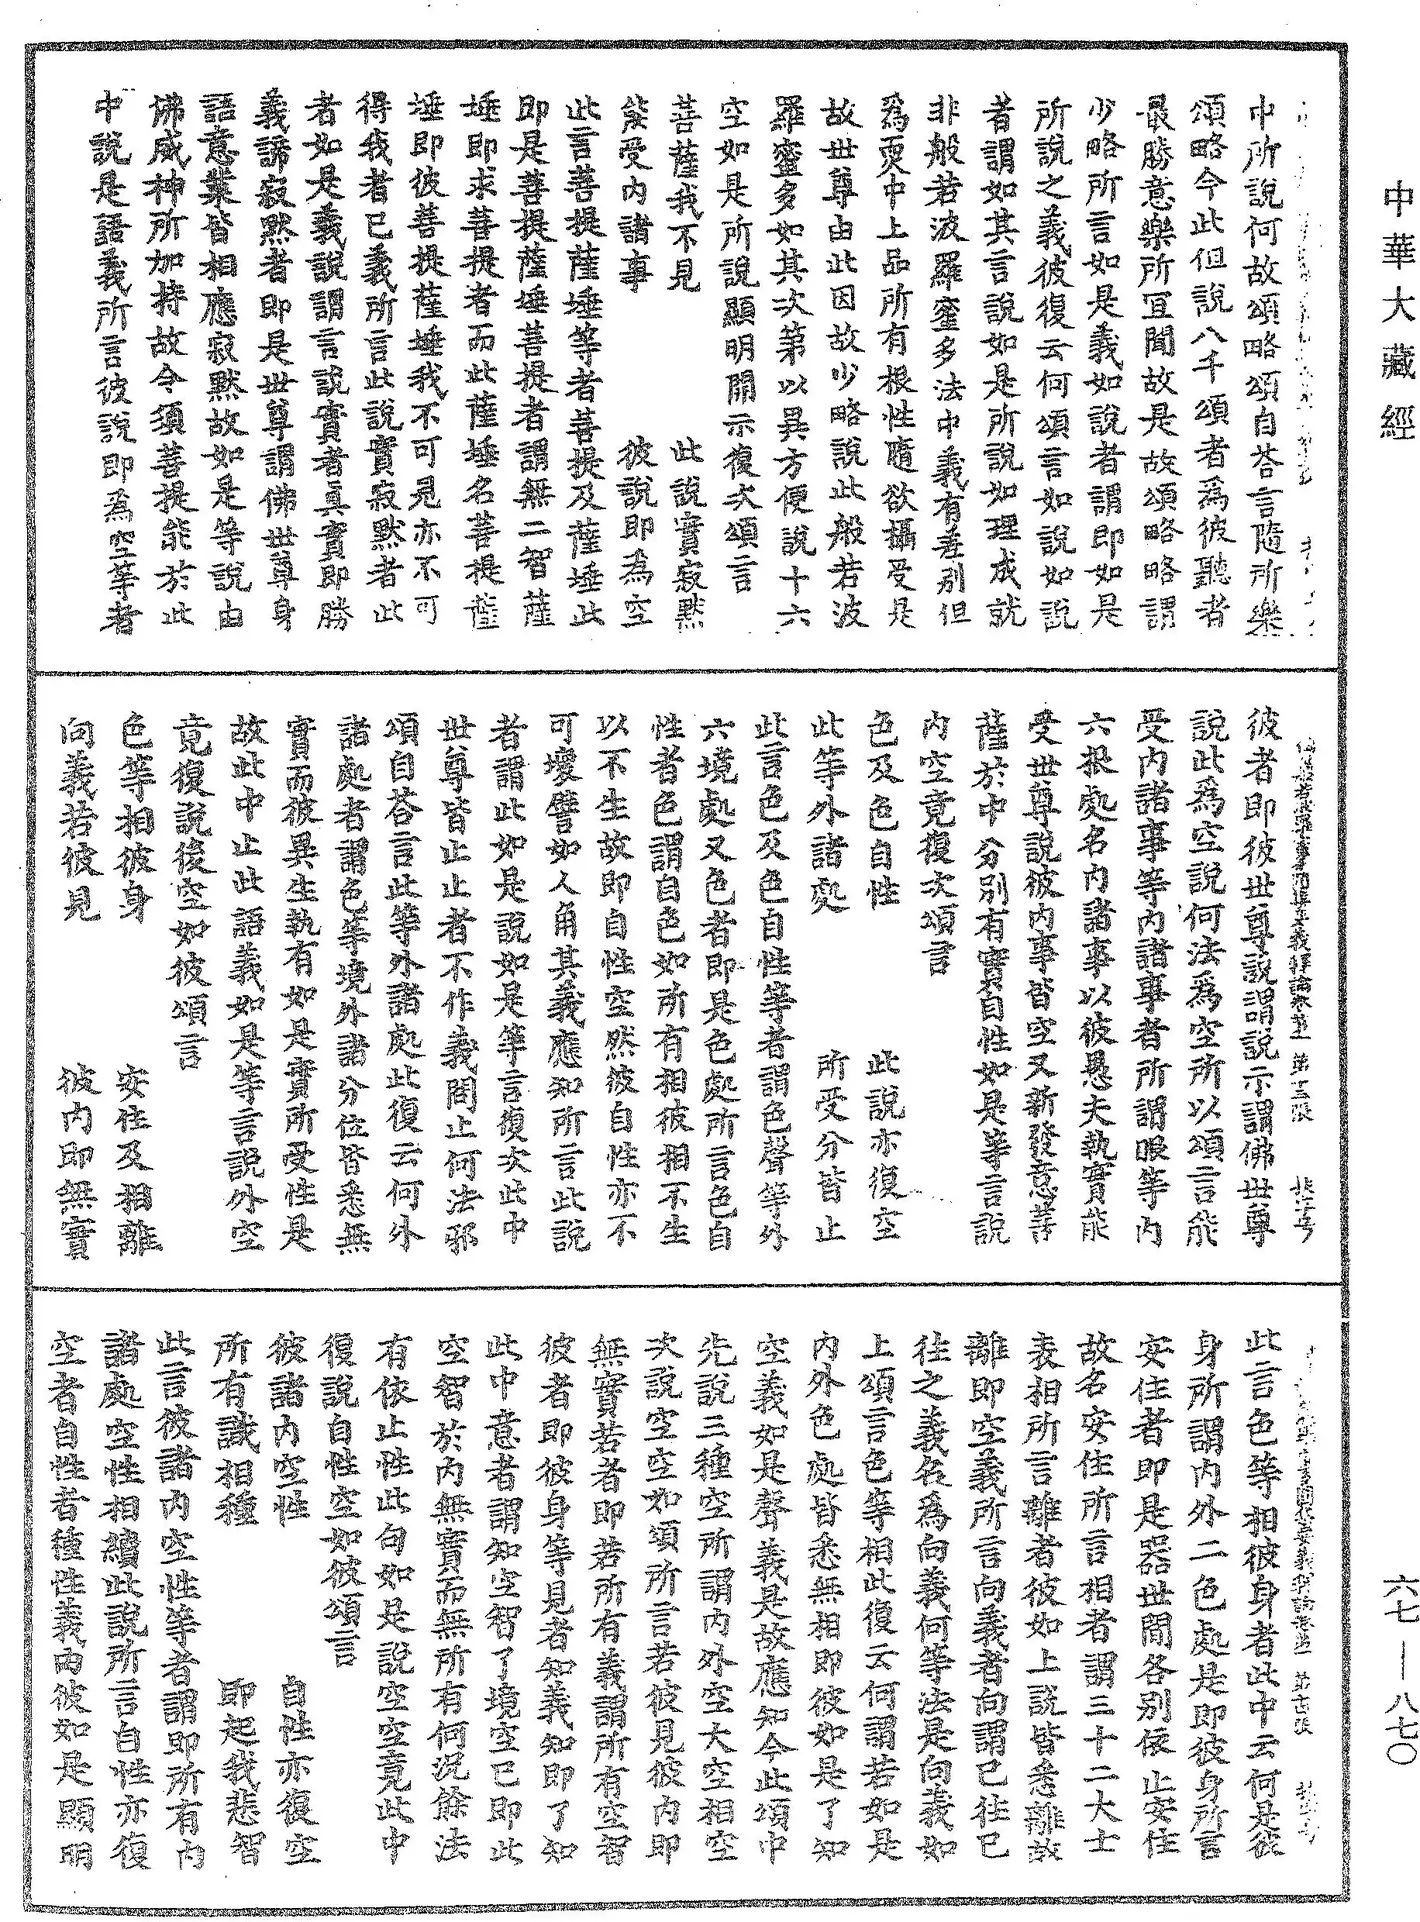 中華大藏經
中所說何故頌略頌自荅言隨所樂
頌略今此但說八千頌者為彼聽者
最勝意樂所冝聞故是故頌略略謂
少略所言如是義如說者謂即如是
所說之義彼復云何頌言如說如說
者謂如其言說如是所說如理成就
非般若波羅蜜多法中義有差別但
為耎中上品所有根性隨欲攝受是
故世尊由此因故少略說此般若波
羅蜜多如其次第以異方便說十六
空如是所說顯明開示復次頌言
菩薩我不見 此說實寂默
能受內諸事 彼說即為空
此言菩提薩埵等者菩提及薩埵此
即是菩提薩埵菩提者謂無二智薩
埵即求菩提者而此薩埵名菩提薩
埵即彼菩提薩埵我不可見亦不可
得我者已義所言此說實寂默者此
者如是義說謂言說實者真實即勝
義諦寂默者即是世尊謂佛世尊身
語意業皆相應寂默故如是等說由
佛威神所加持故令須菩提能於此
中說是語義所言彼說即為空等者
彼者即彼世尊說謂說示謂佛世尊
說此為空說何法為空所以頌言能
受內諸事等內諸事者所謂眼等內
六根處名內諸事以彼愚夫執實能
受世尊說彼內事皆空又新發意菩
薩於中分別有實自性如是等言說
內空竟復次頌言
色及色自性 此說亦復空
此等外諸處 所受分皆止
此言色及色自性等者謂色聲等外
六境處又色者即是色處所言色自
性者色謂自色如所有相彼相不生
以不生故即自性空然彼自性亦不
可壞譬如人角其義應知所言此說
者謂此如是說如是等言復次此中
世尊皆止止者不作義問止何法邪
頌自荅言此等外諸處此復云何外
諸處者謂色等境外諸分位皆悉無
實而彼異生執有如是實所受性是
故此中止此語義如是等言說外空
竟復說後空如彼頌言
色等相彼身 安住及相離
向義若彼見 彼內即無實
此言色等相彼身者此中云何是彼
身所謂內外二色處是即彼身所言
安住者即是器世間各別依止安住
故名安住所言相者謂三十二大士
表相所言離者彼如上說皆悉離故
離即空義所言向義者向謂已往已
往之義名為向義何等法是向義如
上頌言色等相此復云何謂若如是
內外色處皆悉無相即彼如是了知
空義如是聲義是故應知今此頌中
先說三種空所謂內外空大空相空
次說空空如頌所言若彼見彼內即
無實若者即若所有義謂所有空智
彼者即彼身等見者知義知即了知
此中意者謂知空智了境空已即此
空智於內無實而無所有何況餘法
有依止性此句如是說空空竟此中
復說自性空如彼頌言
彼諸內空性 自性亦復空
所有識相種 即起我悲智
此言彼諸內空性等者謂即所有內
諸處空性相續此說所言自性亦復
空者自性者種性義由彼如是顯明
六七—八七〇